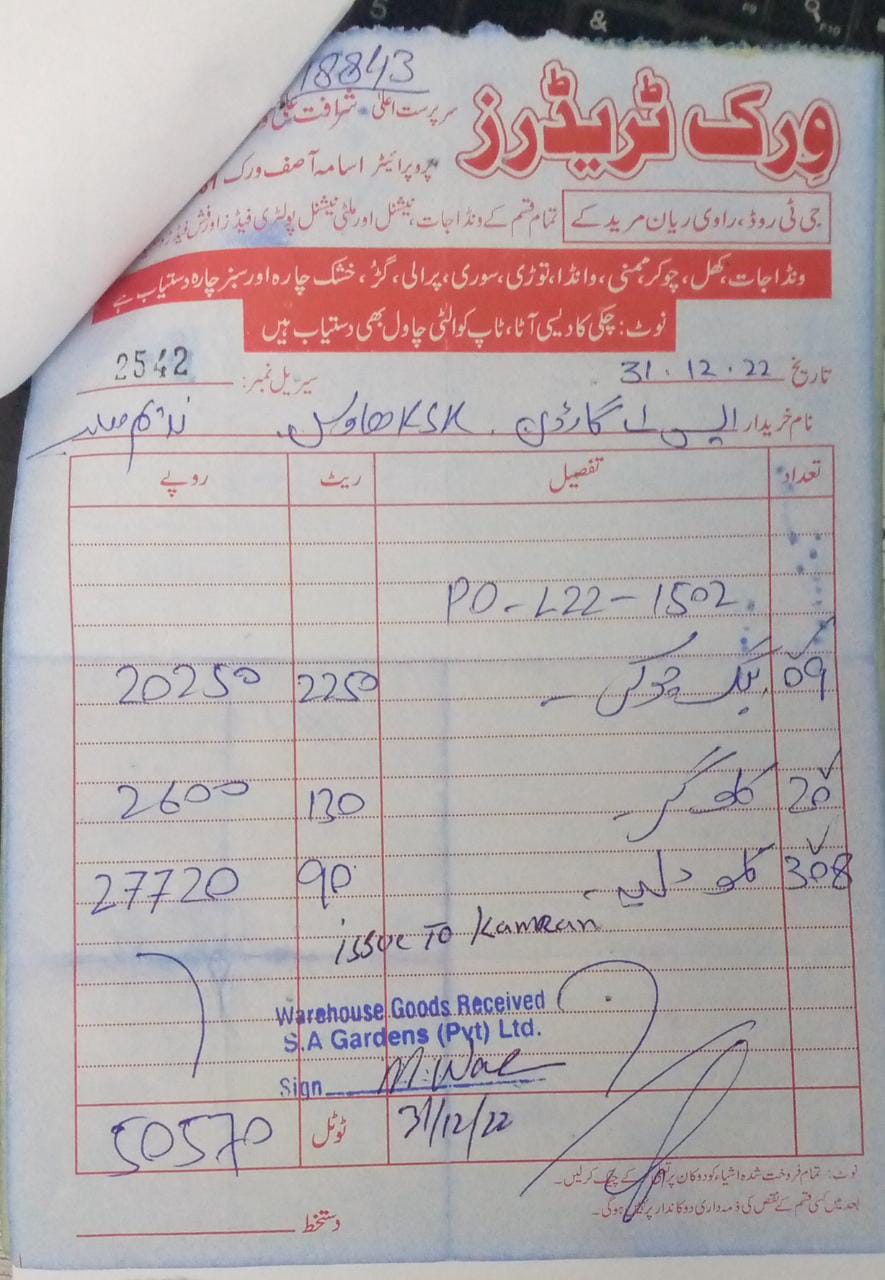 18843
ورک ٹریڈرز
سرپرست اعلیٰ شرافت علی
پروپرائیٹر اسامہ آصف ورک
جی ٹی روڈ، راوی ریان مریدکے
تمام قسم کے ونڈا جات، نیشنل اور ملٹی نیشنل پولٹری فیڈز اور فش فیڈز
ونڈا جات، کھل، چوکر، وانڈا، توڑی، سوری، پرالی، گڑ، خشک چارہ اور سبز چارہ دستیاب ہے
نوٹ: چکی کا دیسی آٹا، ٹاپ کوالٹی چاول بھی دستیاب ہیں
تاریخ 31.12.22 سیریل نمبر: 2542
نام خریدار ایس اے گارڈن KSK ھاوس
تعداد تفصیل ریٹ روپے
PO-L22-1502
09 بیگ چوکر 2250 20250
20 کلو گڑ 130 2600
308 کلو دلیہ 90 27720
issue To Kamran
Warehouse Goods Received
S.A Gardens (Pvt) Ltd.
Sign
31/12/22 ٹوٹل 50570
نوٹ: تمام فروخت شدہ اشیاء کو دوکان پر کے چیک کر لیں۔
بعد میں کسی قسم کے نقص کی ذمہ داری دوکاندار پر نہیں ہوگی۔
دستخط